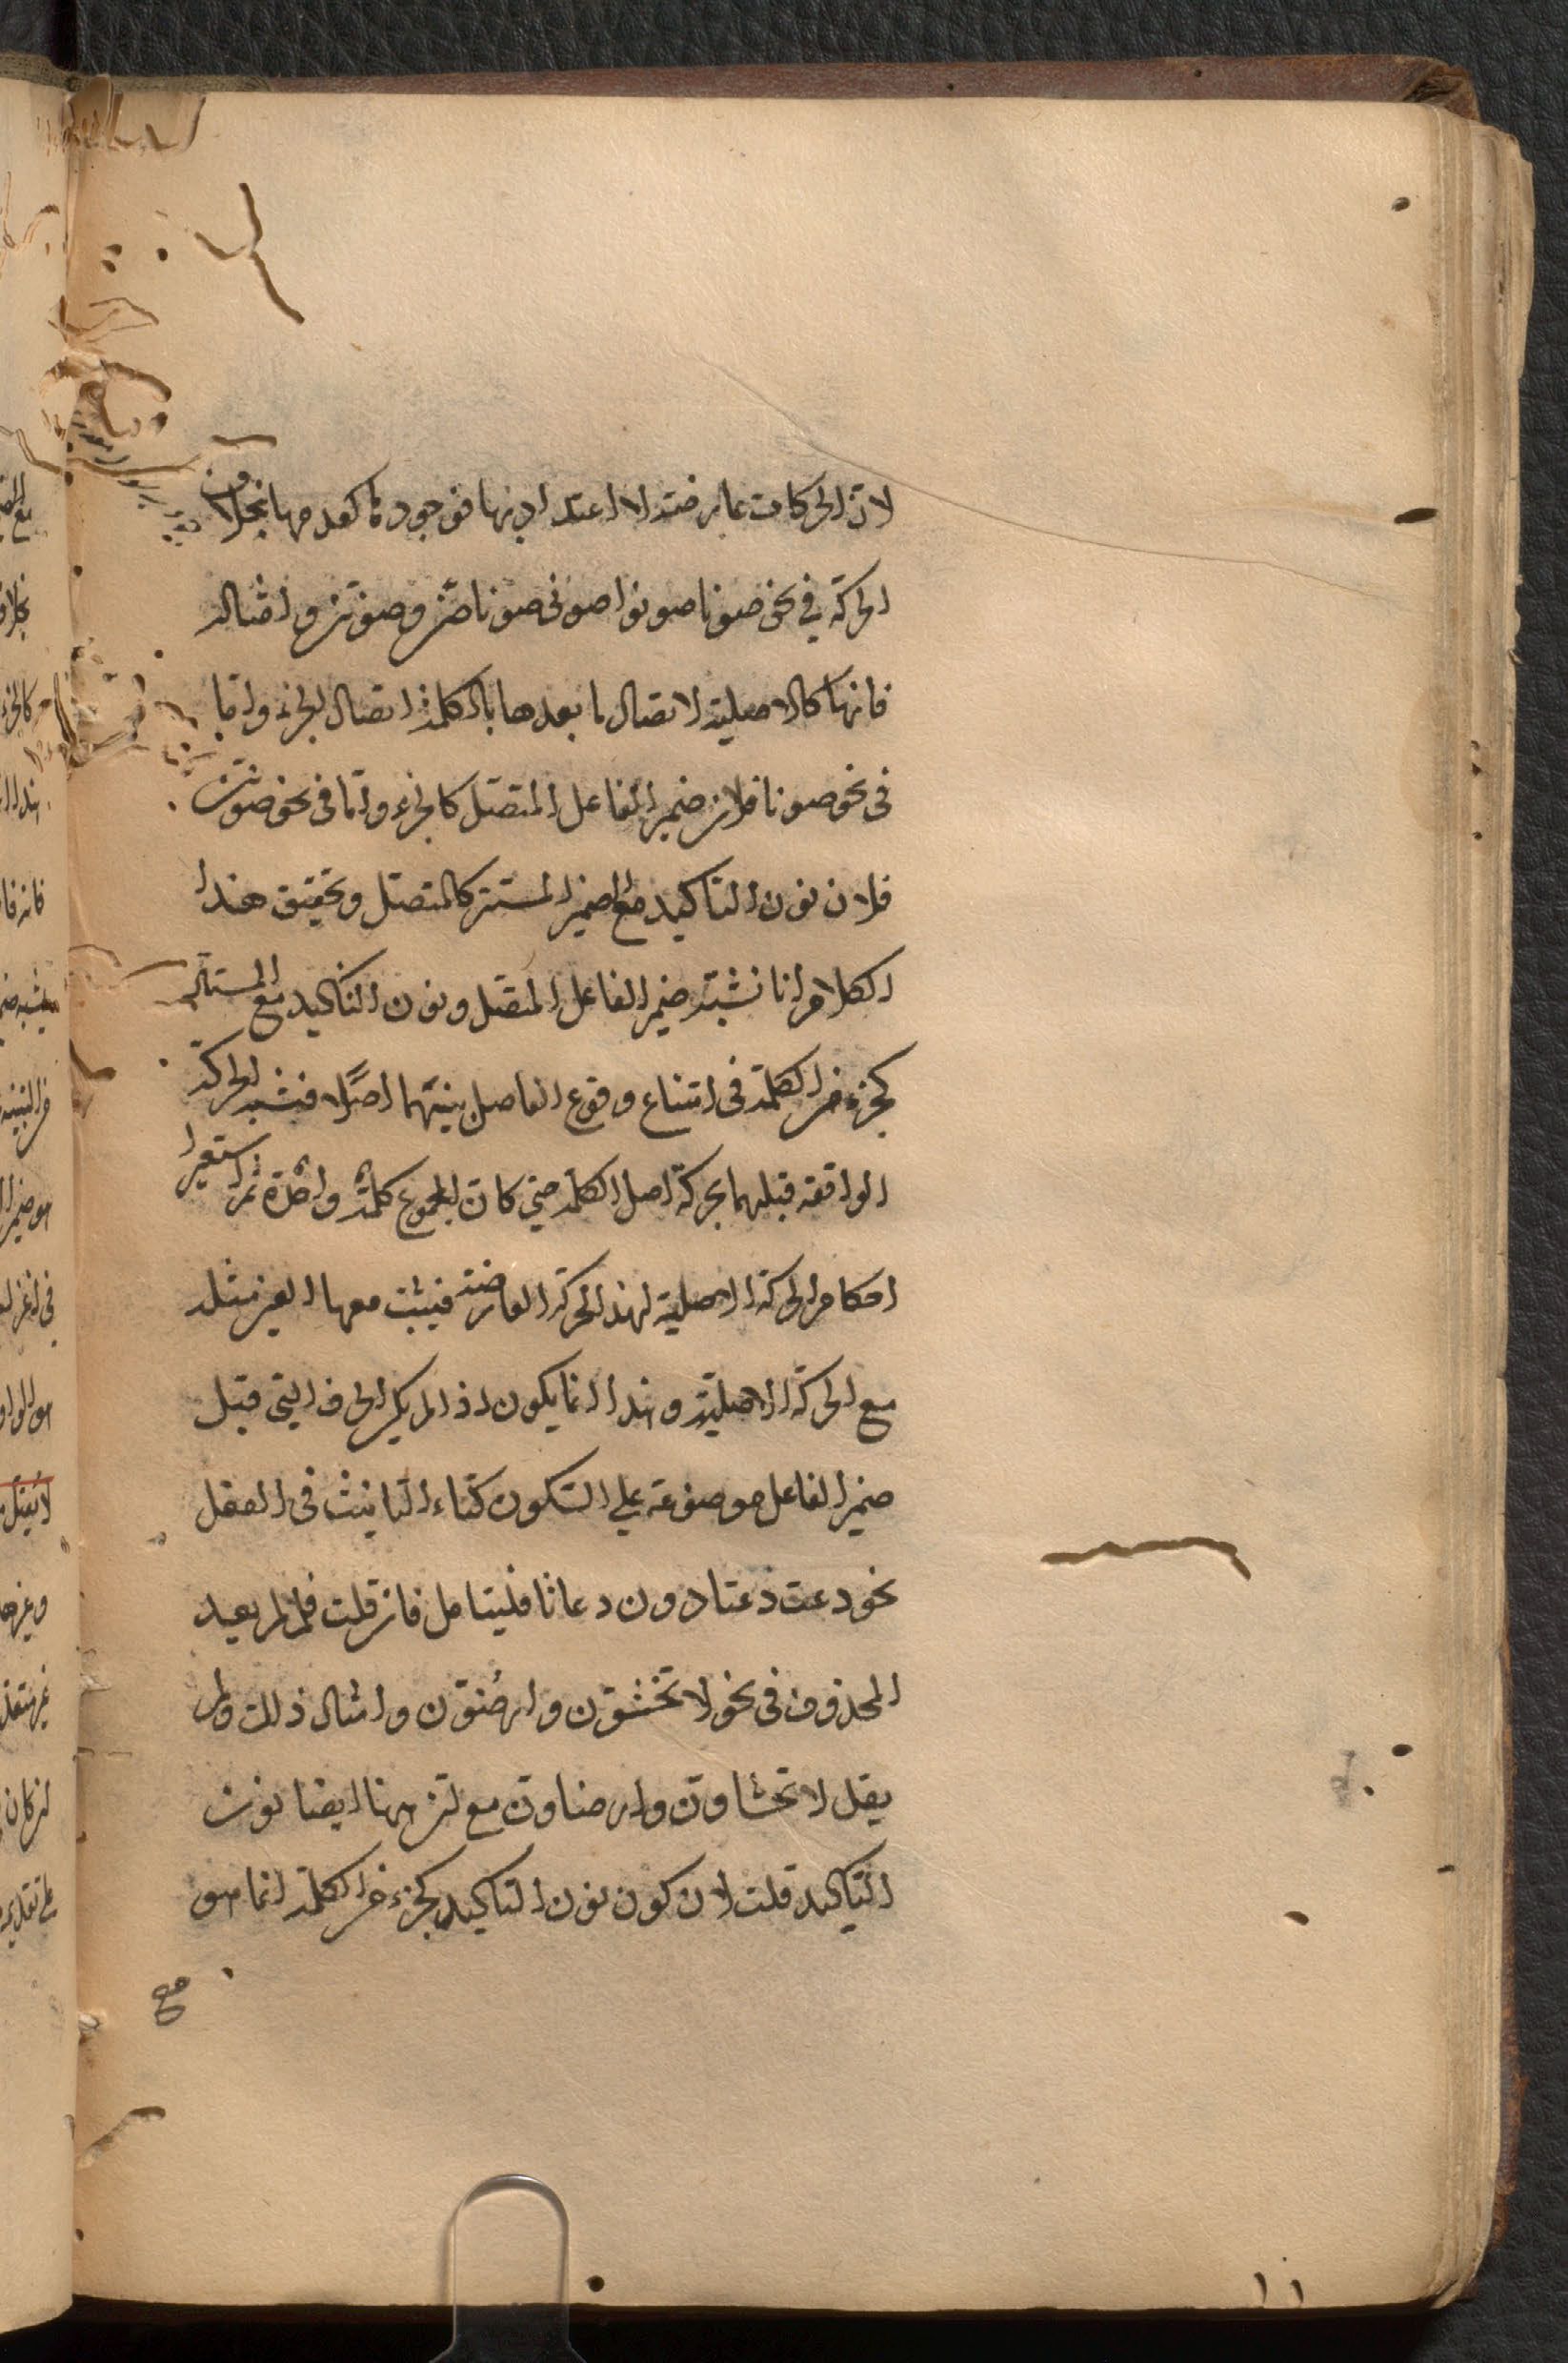 لان الحركات عارضة لا اعتداد بها فوجودها كعدمها بخلاف
الحركة في نحو صونا صونوا صوني صونا صنّ وصونن وامثاله
فانها كالاصلية لاتصال ما بعدها بالكلمة اتصال الجزء واما
في نحو صونا فلان ضمير الفاعل المتصل كالجزء واما في نحو صونن
فلان نون التاكيد مع الضمير المستتر كالمتصل وتحقيق هذا
الكلام انا نشبّه ضمير الفاعل المتصل ونون التاكيد مع المستتر
كجزء من الكلمة في امتناع وقوع الفاصل بينهما اصلا فنشبه الحركة
الواقعة قبلهما بحركة اصل الكلمة حتى كان المجموع كلمة واحدة ثم استعير
احكام الحركة الاصلية لهذه الحركة العارضة فيثبت معها العين مثله
مع الحركة الاصلية وهذا انما يكون اذا لم يكن الحرف التي قبل
ضمير الفاعل موضوعة على السكون كتاء التانيث في الفعل
نحو دعت دعتا دون دعاتا فليتامل فان قلت فلم لم يعيد
المحذوف في نحو لا تخشون وارضون وامثال ذلك ولم
يقل لا تخشاون وارضاون مع ان ههنا ايضا نون
التاكيد قلت لان كون نون التاكيد كجزء من الكلمة انما هو
مع